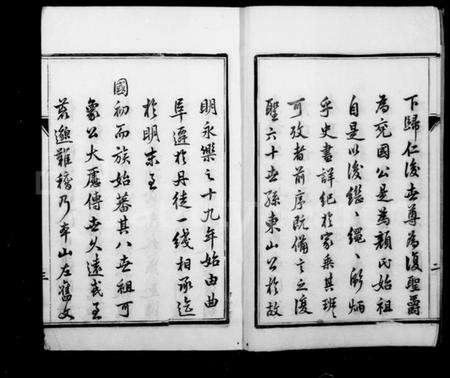 下歸仁後世尊為復聖爵
為兗國公是為顏氏始祖
自是以後繼〻繩〻彪炳
乎史書詳紀於家乘其班
可攷者前序既備言之復
聖六十世孫東山公於故
二
明永樂之十九年始由曲
阜遷於丹徒一綫相承迄
於明末至
國初而族始蕃其八世祖可
象公大應傳世久遠或至
益邈難稽乃本山左舊文
三